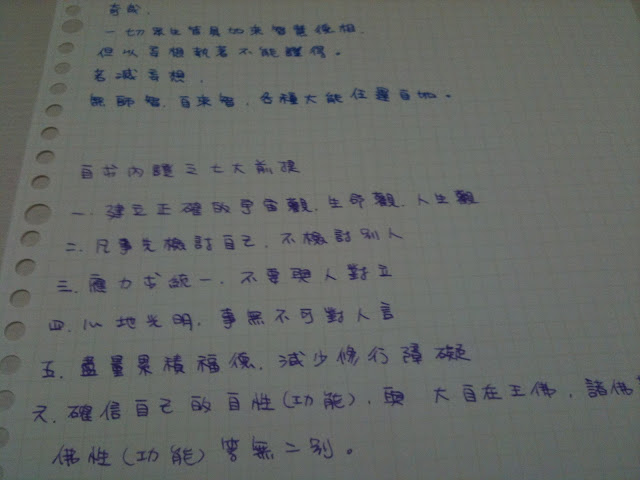 奇哉.
一切眾生皆具如來智慧德相.
但以妄想執著不能證得。
若滅妄想.
無師智.自來智.各種大能任運自如。
自求內證之七大前提
一.建立正確的宇宙觀.生命觀.人生觀
二.凡事先檢討自己.不檢討別人
三.應力求統一.不要與人對立
四.心地光明.事無不可對人言
五.盡量累積福德.減少修行障礙
六.確信自己的自性(功能).與 大自在王佛.諸佛
佛性(功能)等無二別。